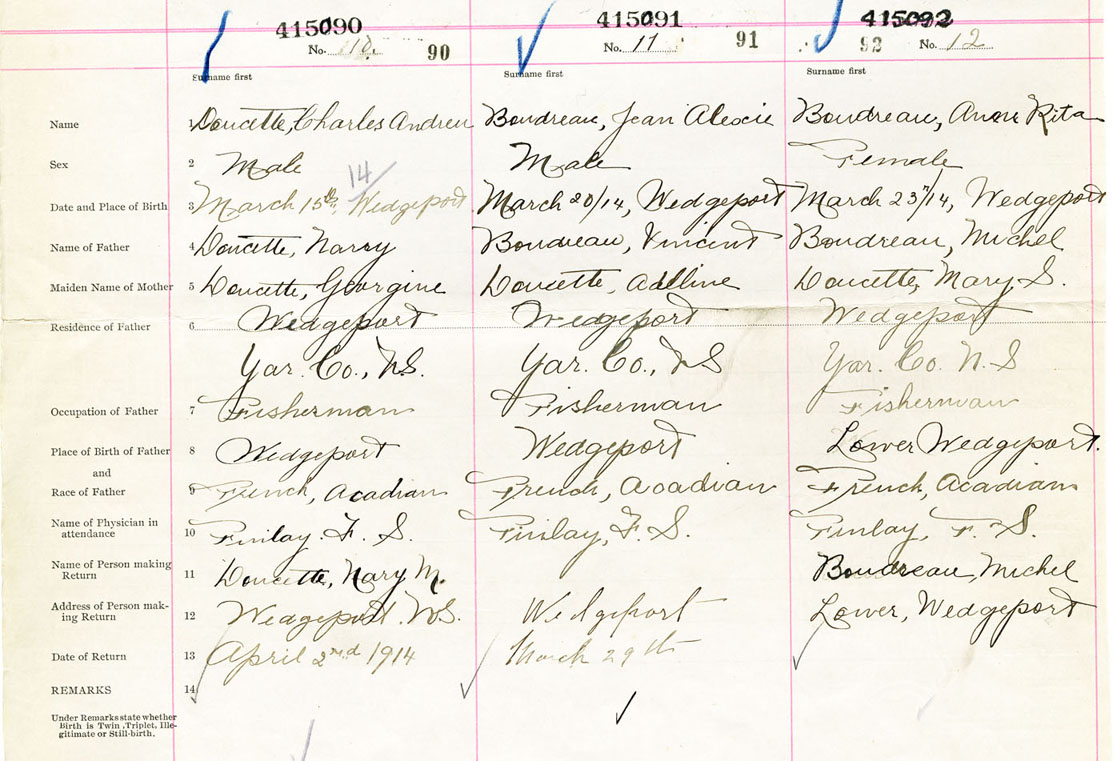 415090 415091 415092
No. 10. 90 No. 11 91 92 No. 12
Surname first Surname first Surname first
Name 1 Doucette, Charles Andrew Boudreau, Jean Alexie Boudreau, Anne Rita
Sex 2 Male Male Female
14
Date and Place of Birth 3 March 15th, Wedgeport March 20/14, Wedgeport March 23"/14, Wedgeport
Name of Father 4 Doucette, Narcy Boudreau, Vincent Boudreau, Michel
Maiden Name of Mother 5 Doucette, Georgine Doucette, Adeline Doucette, Mary S.
Residence of Father 6 Wedgeport Wedgeport Wedgeport
Yar. Co., N.S. Yar. Co., N S Yar. Co. N. S
Occupation of Father 7 Fisherman Fisherman Fisherman
Place of Birth of Father 8 Wedgeport Wedgeport Lower Wedgeport.
and
Race of Father 9 French, Acadian French, Acadian French, Acadian
Name of Physician in
attendance 10 Finlay. F. S. Finlay, F. S. Finlay, F. S.
Name of Person making
Return 11 Doucette, Narcy M. Boudreau, Michel
Address of Person mak-
ing Return 12 Wedgeport. N.S. Wedgeport Lower, Wedgeport
Date of Return 13 April 2nd 1914 March 29th
REMARKS 14
Under Remarks state whether
Birth is Twin, Triplet, Ille-
gitimate or Still-birth.